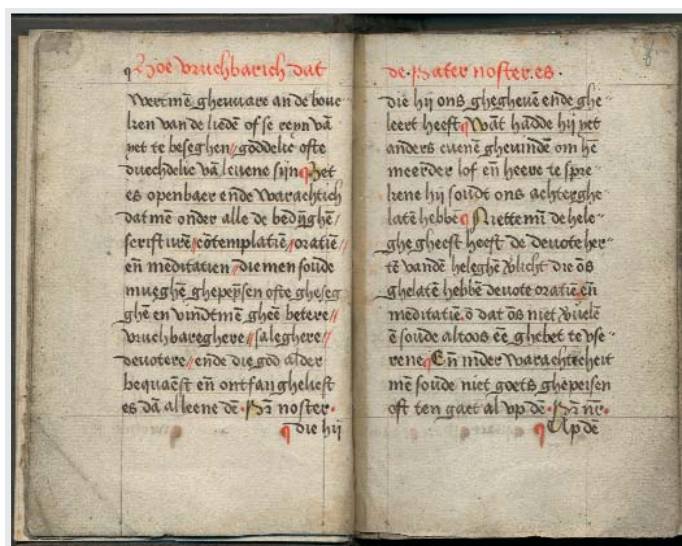 Hoe vruchbarich dat
wertmē gheware an de boue
ken van de liedē of se reyn vā
yet te beseghen // goddelic ofte
duechdelic vā leuene sijn ¶ Het
es openbaer ende warachtich
dat mē onder alle de
scrifturē // cōtemplatiē // oratiē //
eñ meditatien // die men soude
mueghē ghepeysen ofte gheseg
ghē en vindtmē gheē betere //
vruchbareghere // saleghere //
deuotere // ende die god alder
bequaēst eñ ontfangheliest
es dā alleene dē · Pr̄ noster ·
¶ die hij
de · Pater noster · es ·
8
die hij ons ghegheuē ende ghe
leert heeft ¶ wāt hadde hij yet
anders euene ghevindē om hē
meerder lof eñ heere te spre
kene hij soudt ons achterghe
latē hebbē ¶ Niettemī de hele
ghe gheest heeft de deuote her
tē vandē heleghē die ōs
ghelatē hebbē deuote oratiē eñ
meditatiē · o dat ōs niet
ē soude altoos eē ghebet te vse
rene ¶ Eñ inder warachtecheit
mē soude niet goets ghepeisen
oft ten gaet al vp dē · Pr̄ nr̄ ·
¶ Vp dē